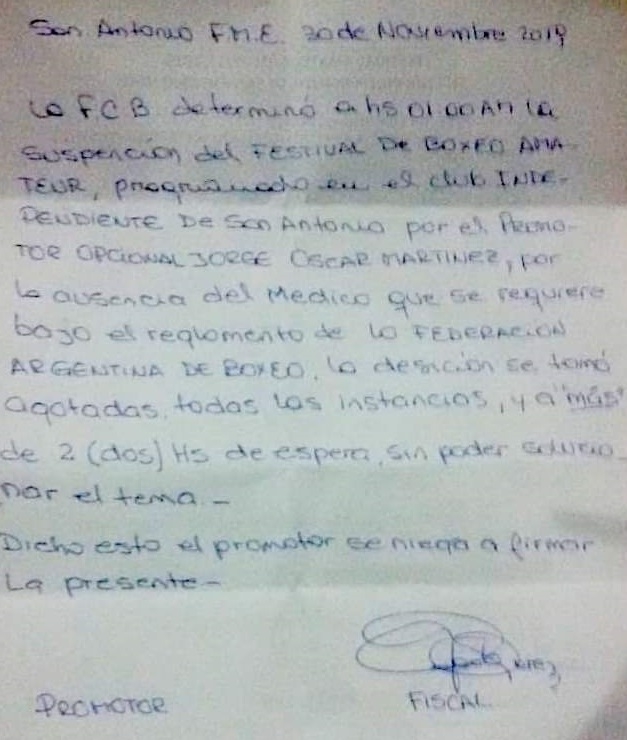 San Antonio F.M.E. 30 de Noviembre 2019
La FCB determinó a hs 01.00AM la
SUSPENCIÓN del FESTIVAL DE BOXEO AMA-
TEUR, programado en el club INDE-
PENDIENTE DE San Antonio por el PROMO-
TOR OPCIONAL JORGE OSCAR MARTINEZ, por
la ausencia del Medico que se requiere
bajo el reglamento de la FEDERACION
ARGENTINA DE BOXEO, la desición se tomó
agotadas, todas las instancias, y a "más"
de 2 (dos) Hs de espera, sin poder solucio-
nar el tema.-
Dicho esto el promotor se niega a firmar
La presente-
PROMOTOR
FISCAL